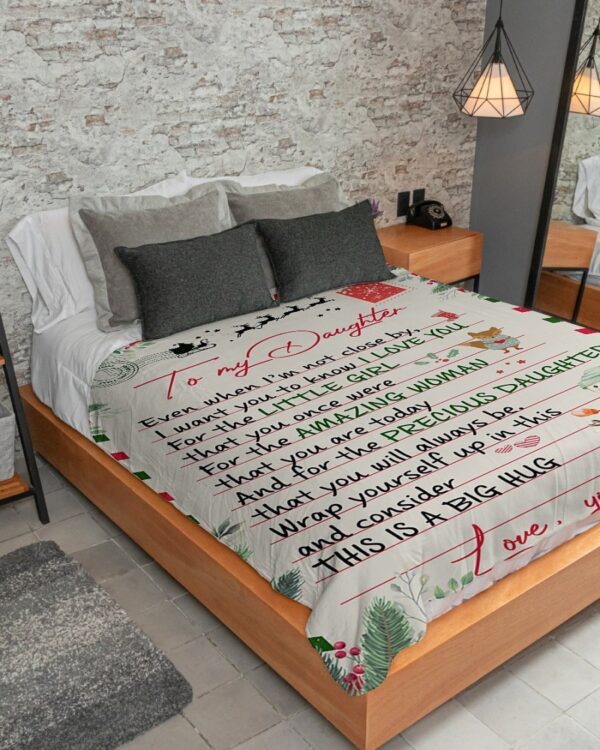 To my Daughter
Even when I'm not close by,
I want you to know I LOVE YOU
For the LITTLE GIRL
that you once were
For the AMAZING WOMAN
that you are today
And for the PRECIOUS DAUGHTER
that you will always be.
Wrap yourself up in this
and consider
THIS IS A BIG HUG
Love,